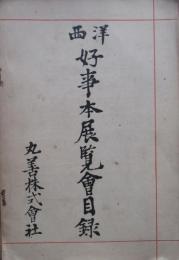 西洋
好事本展覧會目録
丸善株式會社